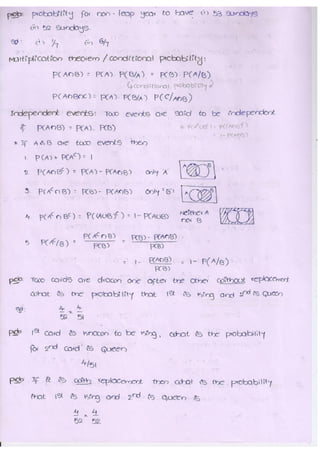 pb: probability for non-leap year to have (i) 53 sundays
(ii) 52 sundays.
so: (i) 1/7 (ii) 6/7
Multiplication theorem / conditional probability:
P(A∩B) = P(A) P(B/A) = P(B) P(A/B)
(conditional probability)
P(A∩B∩C) = P(A) P(B/A) P(C/A∩B)
Independent events: Two events are said to be independent
if P(A∩B) = P(A). P(B)
* If A & B are two events then
1. P(A) + P(Aᶜ) = 1
2. P(A∩Bᶜ) = P(A) - P(A∩B) only 'A'
3. P(Aᶜ∩B) = P(B) - P(A∩B) only 'B'
4. P(Aᶜ∩Bᶜ) = P(A∪B)ᶜ = 1 - P(A∪B) neither A nor B
5. P(Aᶜ/B) = P(Aᶜ∩B)/P(B) = P(B) - P(A∩B)/P(B)
= 1 - P(A∩B)/P(B) = 1 - P(A/B)
pb: Two cards are drawn one after the other without replacement
what is the probability that 1st is king and 2nd is queen
so: 4/52 × 4/51
pb: 1st card is known to be king, what is the probability
for 2nd card is queen
4/51
pb: If it is with replacement then what is the probability
that 1st is king and 2nd is queen is
4/52 × 4/52